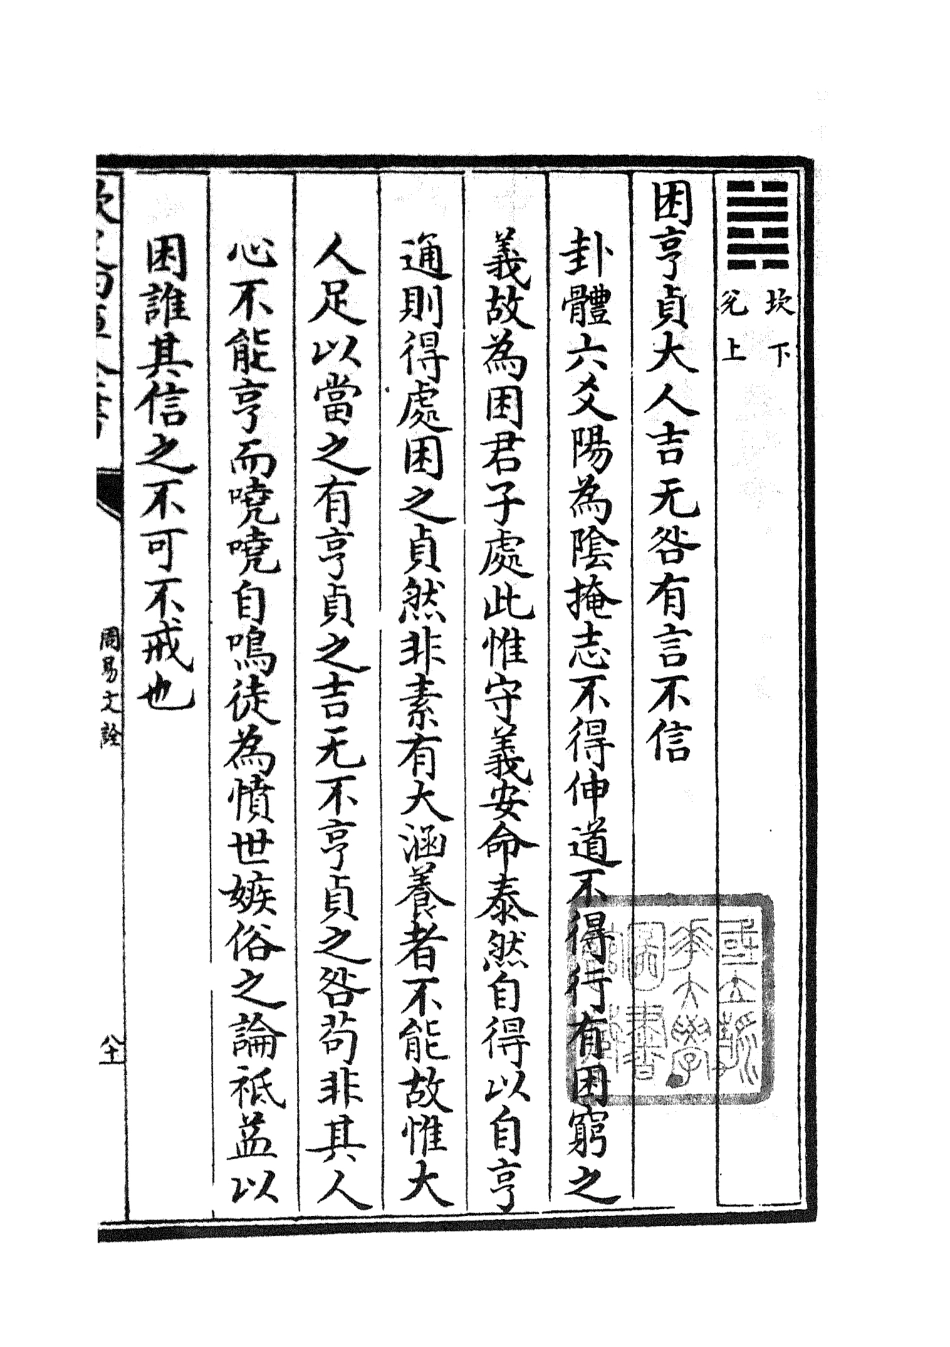 ䷮坎下
兌上
困亨貞大人吉无咎有言不信
卦體六爻陽為陰掩志不得伸道不得行有困窮之
義故為困君子處此惟守義安命泰然自得以自亨
通則得處困之貞然非素有大涵養者不能故惟大
人足以當之有亨貞之吉无不亨貞之咎苟非其人
心不能亨而嘵嘵自鳴徒為憤世嫉俗之論祇益以
困誰其信之不可不戒也
欽定四庫全書
周易文詮
国立清華大學圖書館藏